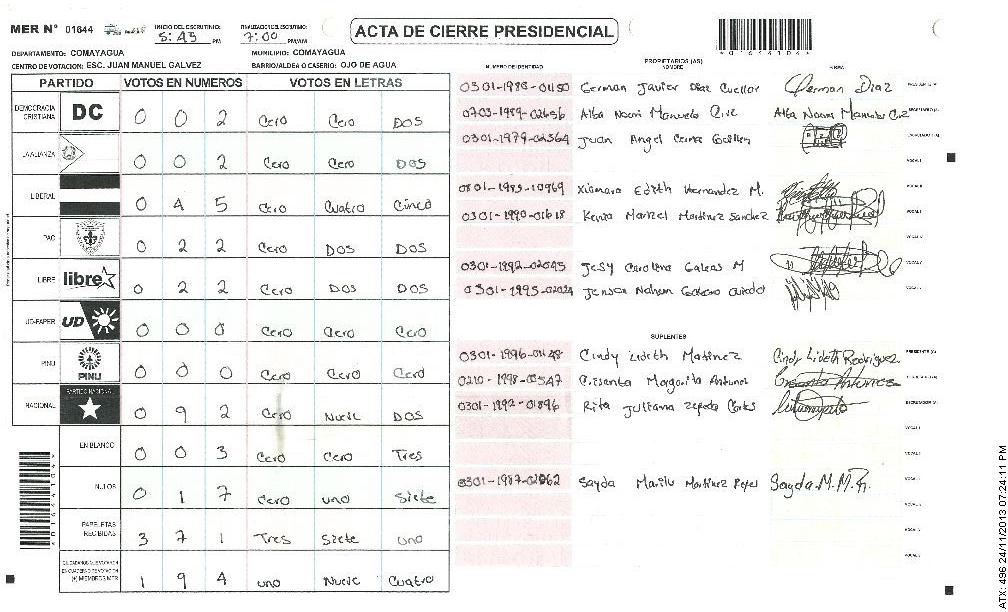 MER N° 01644 INICIO DEL ESCRUTINIO: 5:43 PM FINALIZACION DEL ESCRUTINIO: 7:00 PM/AM
ACTA DE CIERRE PRESIDENCIAL
DEPARTAMENTO: COMAYAGUA MUNICIPIO: COMAYAGUA
CENTRO DE VOTACION: ESC. JUAN MANUEL GALVEZ BARRIO/ALDEA O CASERIO: OJO DE AGUA
PARTIDO VOTOS EN NUMEROS VOTOS EN LETRAS
DEMOCRACIA CRISTIANA DC 0 0 2 Cero Cero DOS
LA ALIANZA 0 0 2 Cero Cero DOS
LIBERAL 0 4 5 Cero Cuatro Cinco
PAC 0 2 2 Cero DOS DOS
LIBRE libre 0 2 2 Cero DOS DOS
UD-FAPER UD 0 0 0 Cero Cero Cero
PINU PINU 0 0 0 Cero Cero Cero
NACIONAL PARTIDO NACIONAL 0 9 2 Cero Nueve DOS
EN BLANCO 0 0 3 Cero Cero Tres
NULOS 0 1 7 Cero uno Siete
PAPELETAS RECIBIDAS 3 7 1 Tres Siete uno
CIUDADANOS QUE VOTARON EN CUADERNO DE VOTACION (+) MIEMBROS MER 1 9 4 uno Nueve Cuatro
NUMERO DE IDENTIDAD PROPIETARIOS (AS) NOMBRE FIRMA
German Javier Diaz Cuellar German Diaz PRESIDENTE (A)
0703-1989-02656 Alba Noemi Manueles Cruz Alba Noemi SECRETARIO (A)
0301-1979-02364 Juan Angel
VOCAL I
0801-1985-10969 Xiomara Edith Hernandez M.
0301-1990-01618 Kenia Marizel Martinez Sanchez
0301-1992-02045 Jesy Carolina Galeas M
0301-1995-02024
SUPLENTES
Cindy Lideth Martinez Cindy Lideth Rodriguez PRESIDENTE (A)
Margarita Antunez
0301-1992-01896 Rita Juliana Zepeda
0301-1987-02062 Sayda Marilu Martinez Reyes Sayda M.M.R.
ATX: 496 24/11/2013 07:24:11 PM